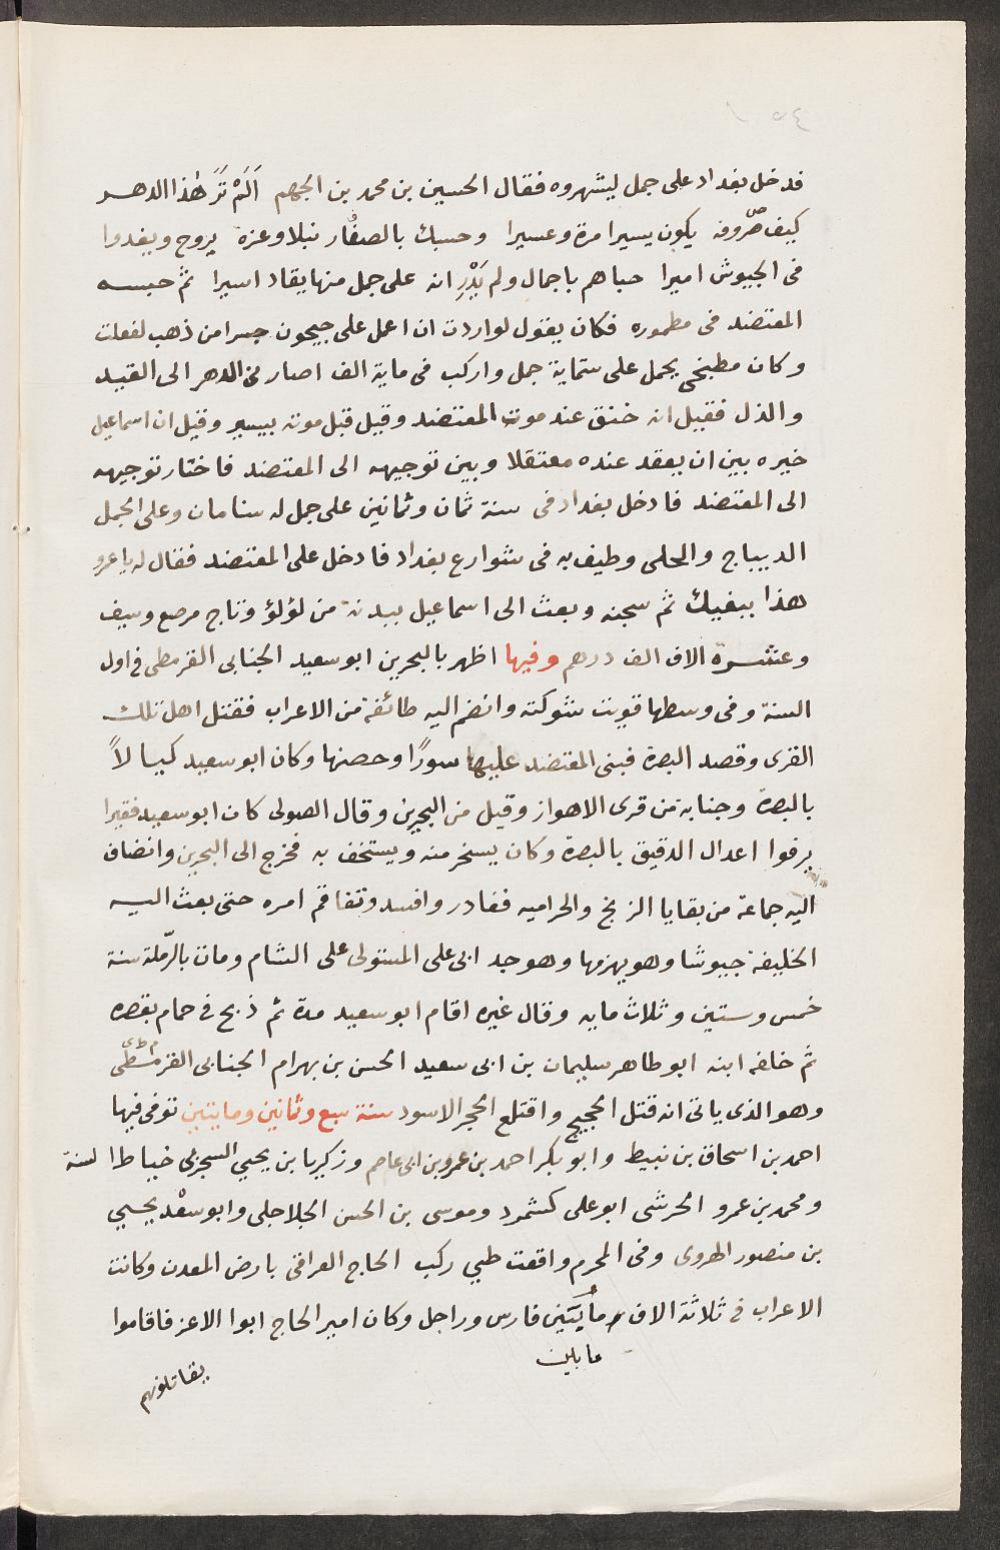 فدخل بغداد على جمل ليشهروه فقال الحسين بن محمد بن الجهم اَلَمْ تَرَ هٰذا الدهر
كيف صروفه يكون يسيرا مرة وعسيرا وحسبك بالصفَّار نبلا وعزة يروح ويغدوا
فى الجيوش اميرا حباهم باجمال ولم يَدْرِ انه على جمل منها يقاد اسيرا ثم حبسه
المعتضد فى مطموره فكان يقول لو اردت ان اعمل على جيحون جسرا من ذهب لفعلت
وكان مطبخى يحمل على ستماية جمل واركب فى ماية الف اصارنى الدهر الى القيد
والذل فقيل انه خنق عند موت المعتضد وقيل قبل موته بيسير وقيل ان اسماعيل
خيره بين ان يعقد عنده معتقلا وبين توجيهه الى المعتضد فاختار توجيهه
الى المعتضد فادخل بغداد فى سنة ثمان وثمانين على جمل له سنامان وعلى الجمل
الديباج والحلى وطيف به فى شوارع بغداد فادخل على المعتضد فقال له يا عمرو
هذا ببغيك ثم سجنه وبعث الى اسماعيل ببدنة من لؤلؤ وتاج مرصع وسيف
وعشرة الاف الف درهم وفيها اظهر بالبحرين ابو سعيد الجنابى القرمطى فى اول
السنة وفى وسطها قويت شوكته وانضم اليه طائفة من الاعراب فقتل اهل تلك
القرى وقصد البصرة فبنى المعتضد عليها سورًا وحصنها وكان ابو سعيد كيالاً
بالبصرة وجنابة من قرى الاهواز وقيل من البحرين وقال الصولى كان ابو سعيد فقيرا
يرفوا اعدال الدقيق بالبصرة وكان يسخر منه ويستخف به فخرج الى البحرين وانضاف
اليه جماعة من بقايا الزنج والحراميه فغادر وافسد وتفاقم امره حتى بعث اليه
الخليفة جيوشا وهو يهزمها وهو جد ابى على المستولى على الشام ومات بالرّملة سنة
خمس وستين وثلاث مايه وقال غيره اقام ابو سعيد مدة ثم ذبح فى حمام بقصره
ثم خلفه ابنه ابو طاهر سليمان بن ابى سعيد الحسن بن بهرام الجنابى القرمطى
وهو الذى ياتى انه قتل الحجيج واقتلع الحجر الاسود سنة سبع وثمانين ومايتين توفى فيها
احمد بن اسحاق بن نبيط وابو بكر احمد بن عمرو بن ابى عاصم وزكريا بن يحيى السجزى خياط السنة
ومحمد بن عمرو الحرشى ابو على كشمرد وموسى بن الحسن الجلاجلى وابو سعْد يحيى
بن منصور الهروى وفى المحرم واقعت طيى ركب الحاج العراقى بارض المعدن وكانت
الاعراب فى ثلاثة الاف مأيتين فارس وراجل وكان امير الحاج ابوا الاعز فاقاموا
يقاتلونهم